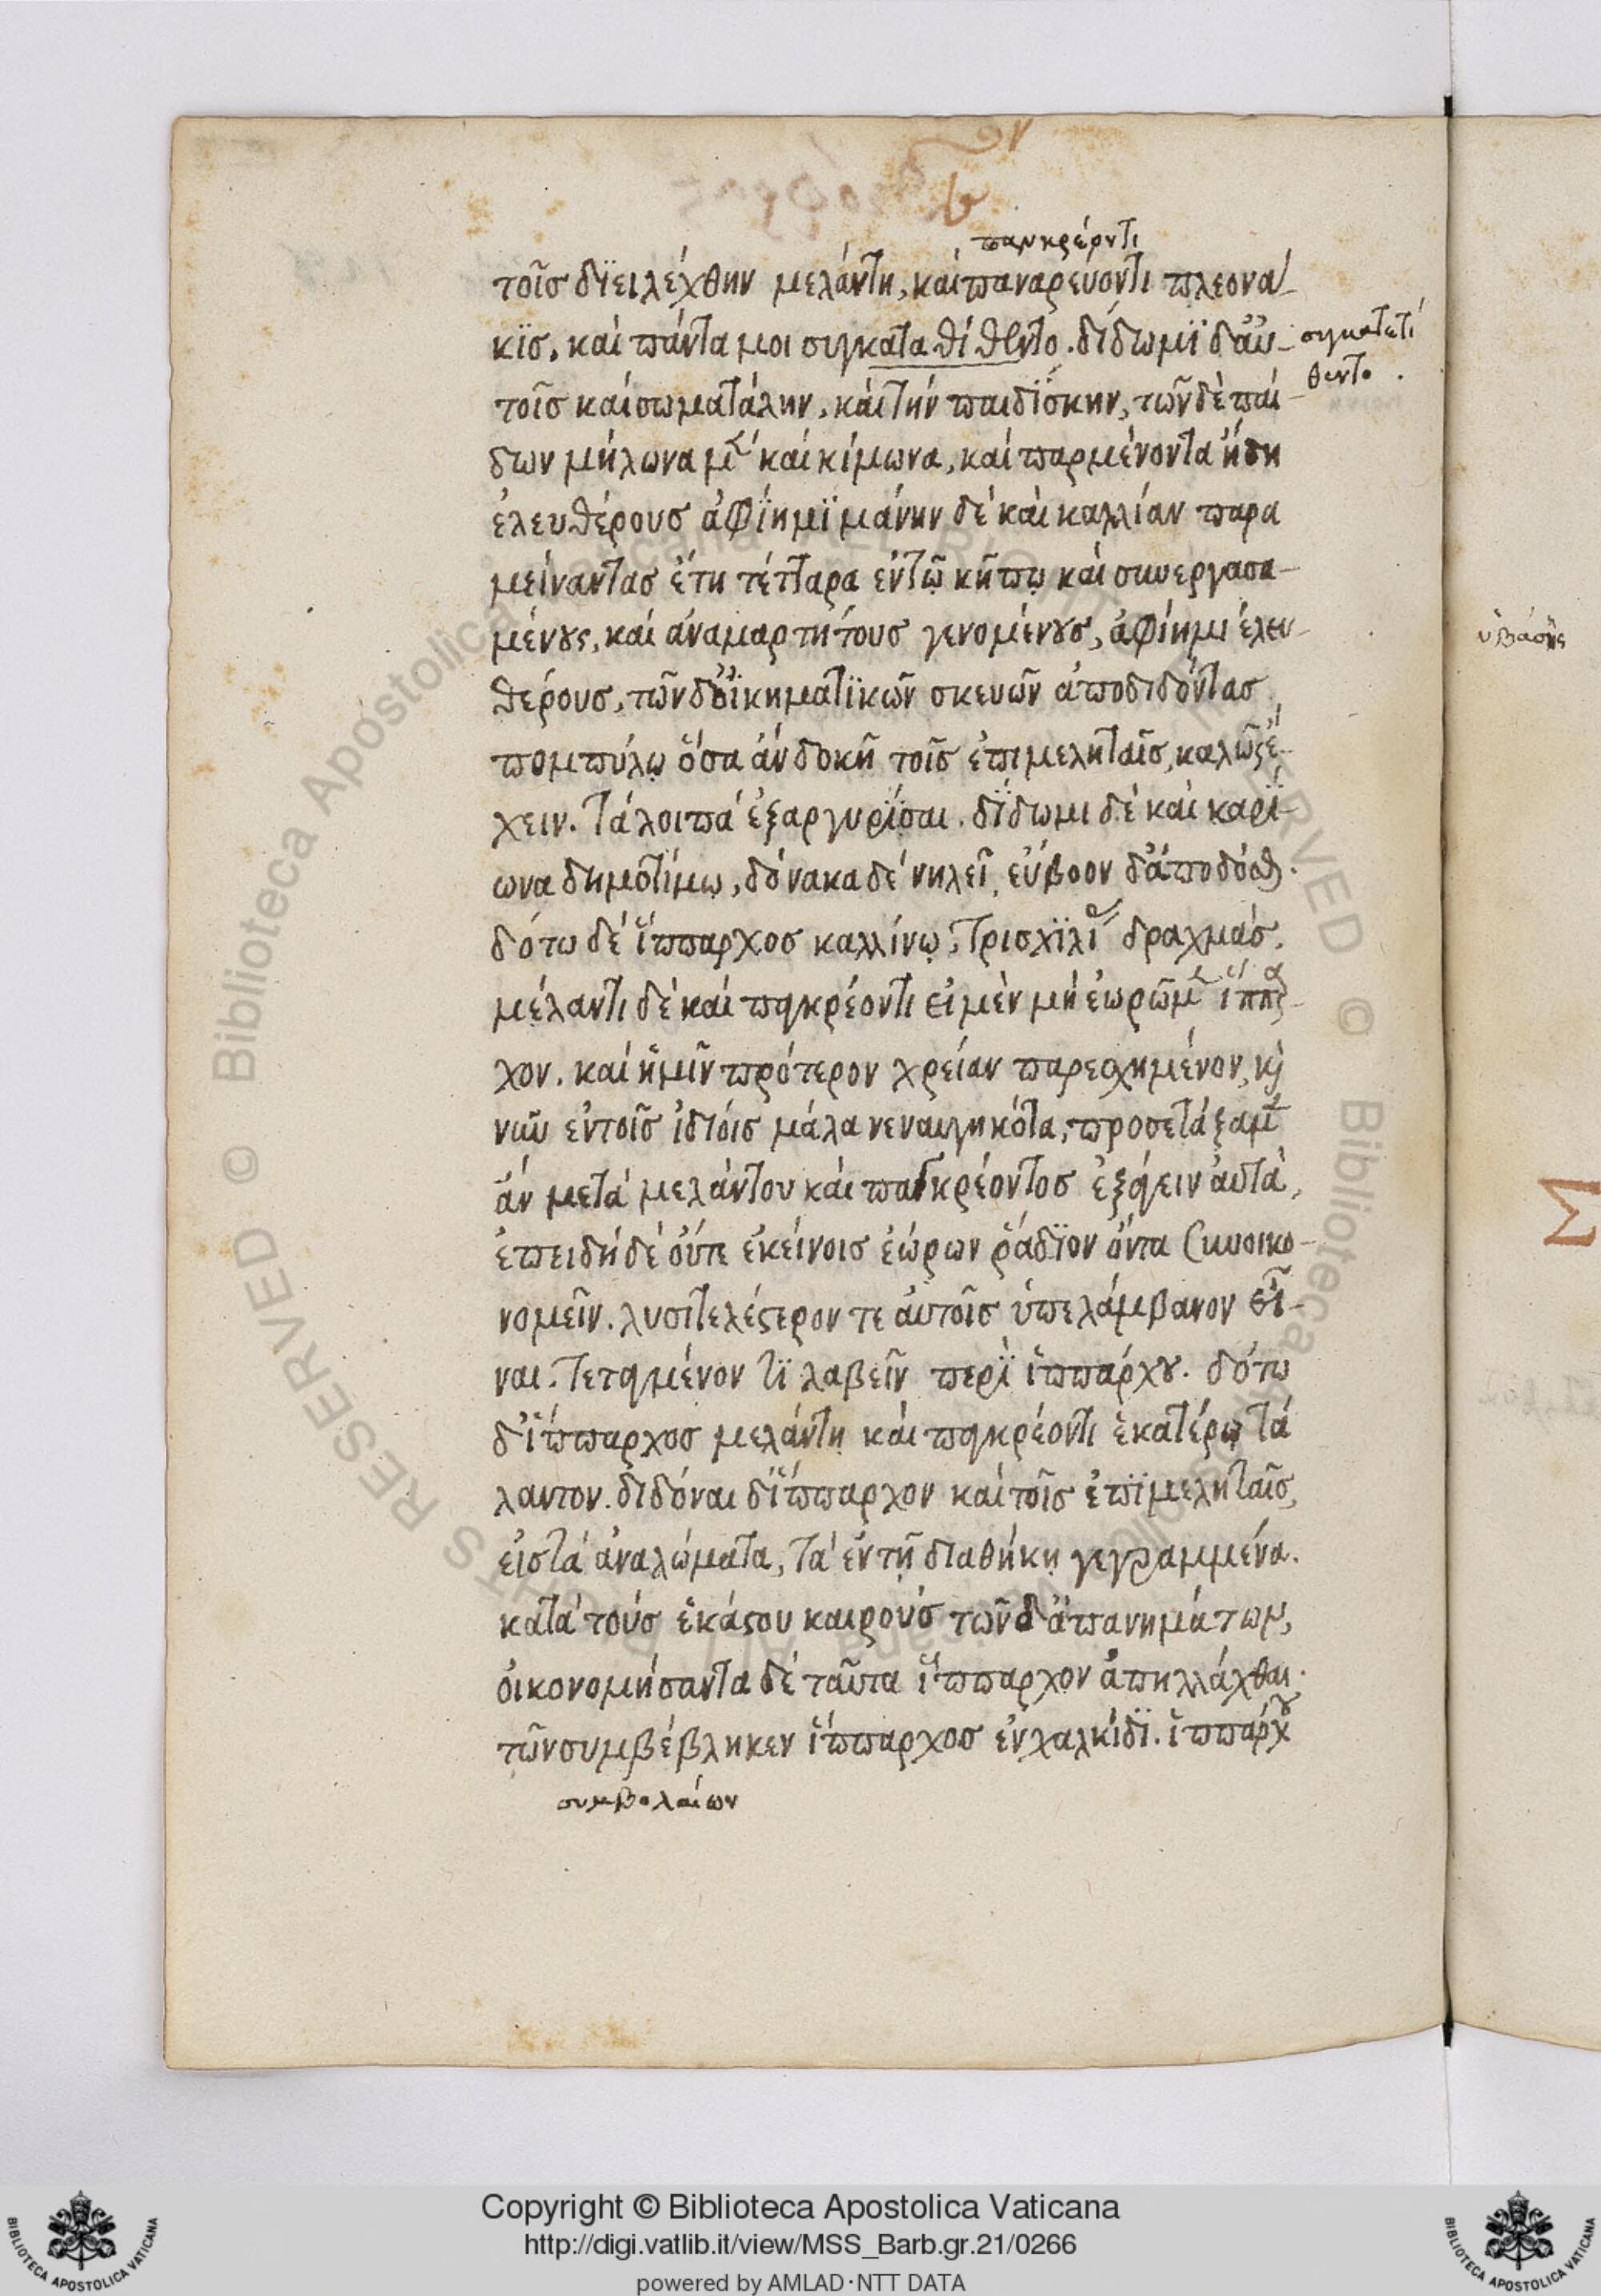 παγκρέοντι
τοῖσ δϊειλέχθην μελάντη, καὶ παναρεύοντι πλεονά-
κϊσ, καὶ πάντα μοι συγκατα θί θεντο. δίδωμϊ δ' αὐ-
συγκατετί
θεντο.
τοῖσ καὶ σωματάλην, καὶ τὴν παιδΐσκην, τῶν δὲ παί
δων μήλωνα μὲν καὶ κίμωνα, καὶ παρμένοντα ἤδη
ἐλευθέρουσ ἀφΐημϊ μάνην δὲ καὶ καλλίαν παρα
μείναντασ ἔτη τέτταρα ἐν τῷ κήπῳ καὶ συνεργασα-
μένους, καὶ ἀναμαρτήτουσ γενομένουσ, ἀφίημι ἐλευ-
θέρουσ, τῶν δ' οἰκηματϊκῶν σκευῶν ἀποδιδόντασ
πομπύλῳ ὅσα ἂν δοκῇ τοῖσ ἐπιμεληταῖσ, καλῶς ἔ-
χειν. τὰ λοιπὰ ἐξαργυρΐσαι. δΐδωμι δὲ καὶ καρΐ-
ωνα δημοτίμῳ, δόνακα δὲ νηλεῖ, εὔβοον δ' ἀποδόσθαι.
δότω δὲ ἵππαρχοσ καλλίνῳ, τρισχϊλίας δραχμάσ.
μέλαντι δὲ καὶ παγκρέοντι εἰ μὲν μὴ ἑωρῶμεν ἵππαρ-
χον. καὶ ἡμῖν πρότερον χρείαν παρεσχημένον, καὶ
νῦν ἐν τοῖσ ἰδίοισ μάλα νεναυαγηκότα, προσετάξαμεν
ἂν μετὰ μελάντου καὶ παγκρέοντοσ ἐξάγειν αὐτὰ,
ἐπειδὴ δὲ οὔτε ἐκείνοισ ἑώρων ῥᾴδϊον ὄντα συνοικο-
νομεῖν. λυσιτελέστερον τε αὐτοῖσ ὑπελάμβανον εἶ-
ναι. τεταγμένον τϊ λαβεῖν περὶ ἱππάρχου. δότω
δ' ἵππαρχοσ μελάντη καὶ παγκρέοντι ἑκατέρῳ τά
λαντον. διδόναι δ' ἵππαρχον καὶ τοῖσ ἐπϊμεληταῖσ,
εἰσ τὰ ἀναλώματα, τὰ ἐν τῇ διαθήκῃ γεγραμμένα.
κατὰ τοὺσ ἑκάστου καιροὺσ τῶν δ' ἀπανημάτων,
οἰκονομήσαντα δὲ ταῦτα ἵππαρχον ἀπηλλάχθαι.
τῶν συμβέβληκεν ἵππαρχοσ ἐν χαλκίδϊ. ἱππάρχου
συμβολαίων
ὑβάσης
Σ
Copyright © Biblioteca Apostolica Vaticana
http://digi.vatlib.it/view/MSS_Barb.gr.21/0266
powered by AMLAD·NTT DATA